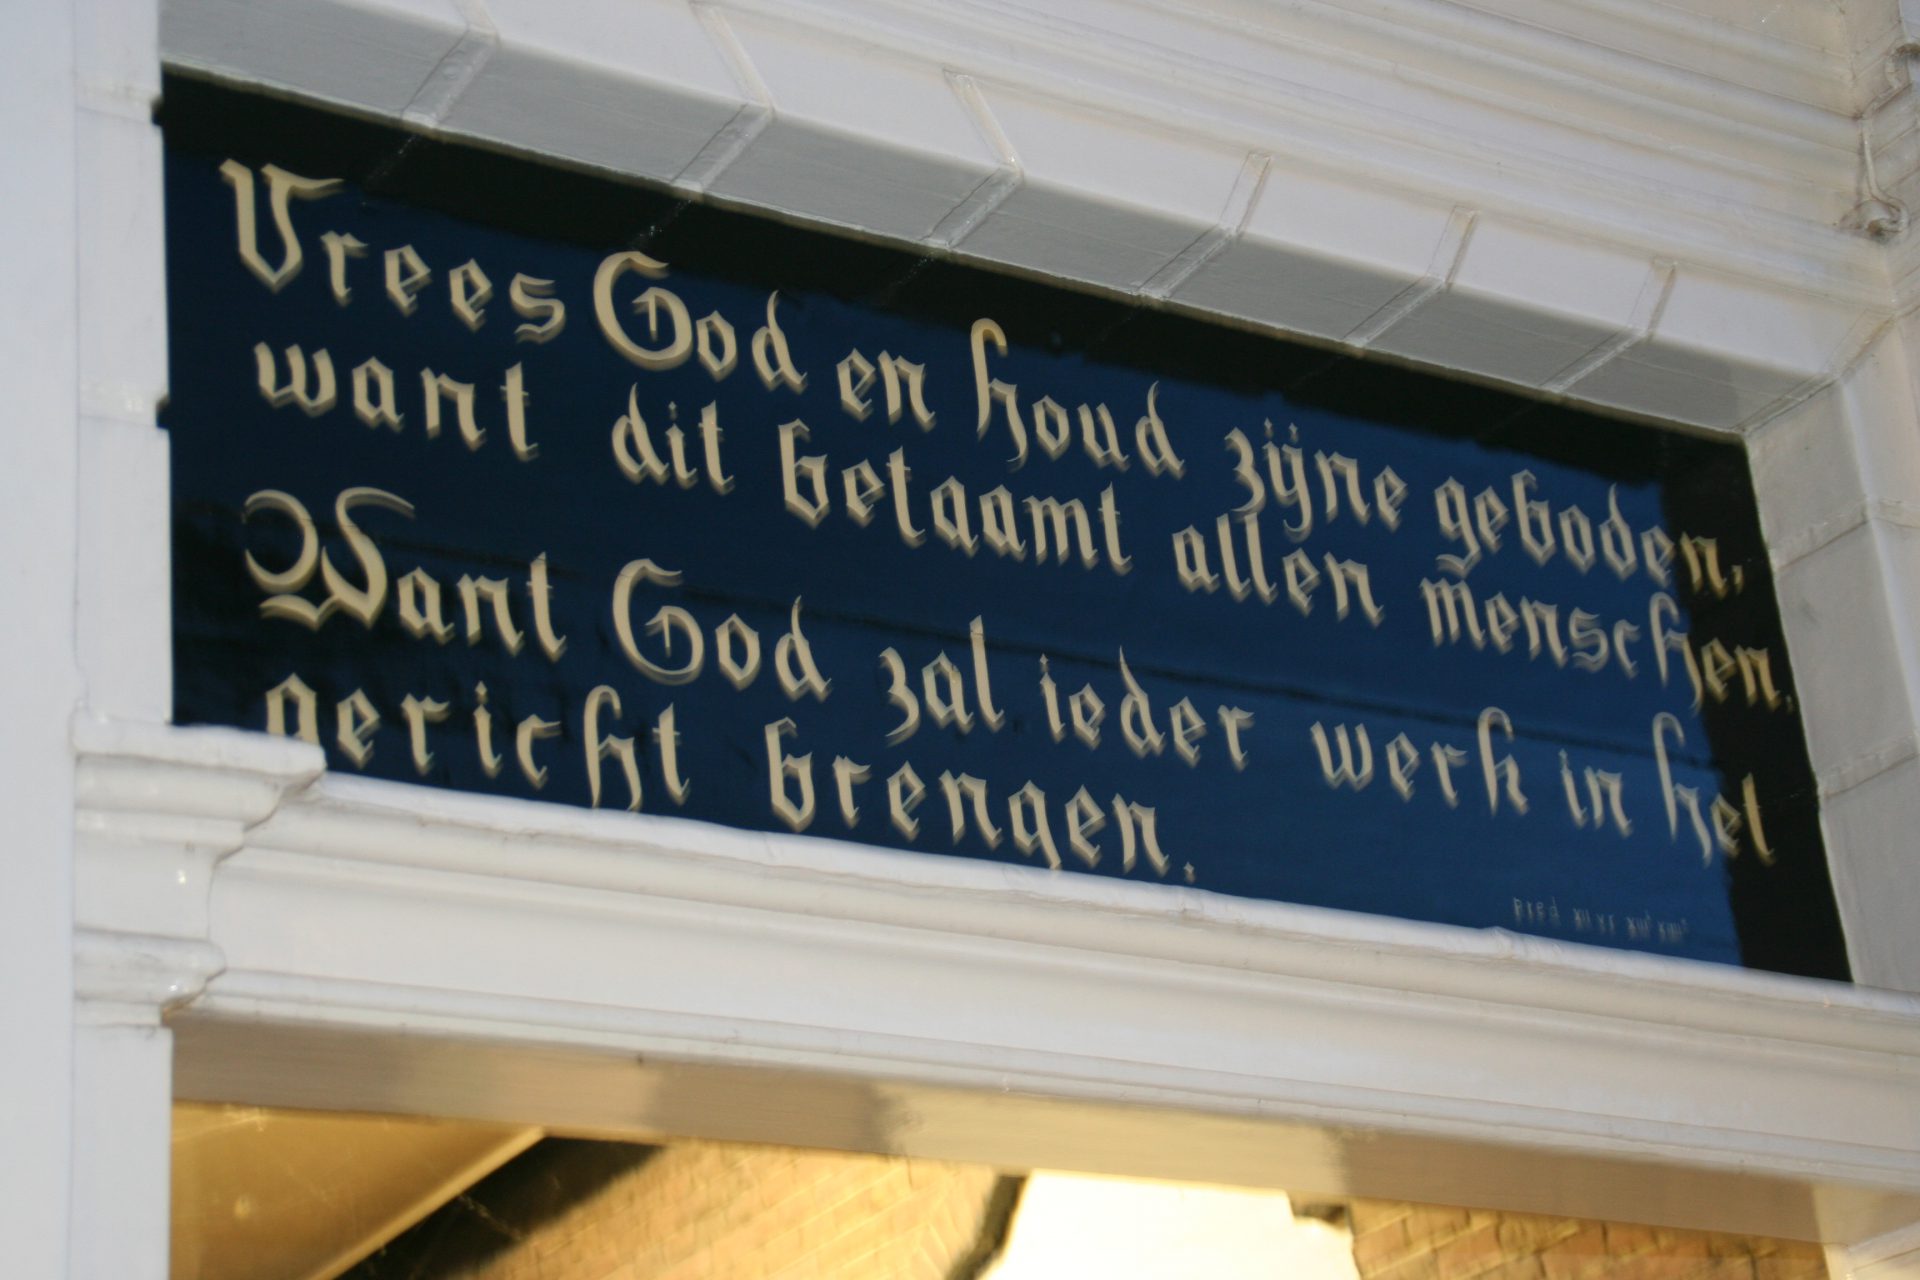 Vrees God en houd zijne geboden,
want dit betaamt allen menschen.
Want God zal ieder werk in het
gericht brengen.
Pred XII vs XIII XIIII